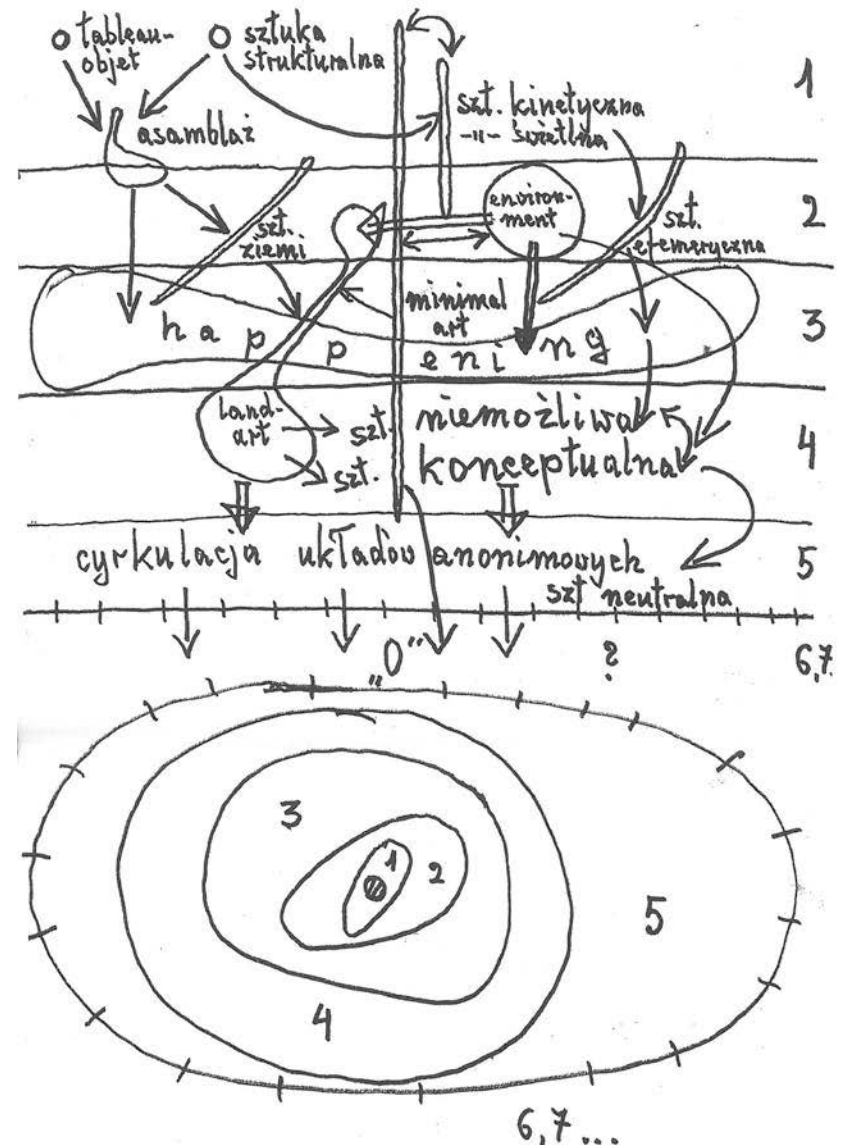 tableau-
objet
sztuka
strukturalna
1
asamblaż
szt. kinetyczna
-"- świetlna
2
szt.
ziemi
environ-
ment
szt.
efemeryczna
minimal
art
3
happening
land-
art
szt.
szt.
niemożliwa
konceptualna
4
cyrkulacja układów anonimowych
5
szt neutralna
"0"
?
6,7
3
1
2
5
4
6,7...